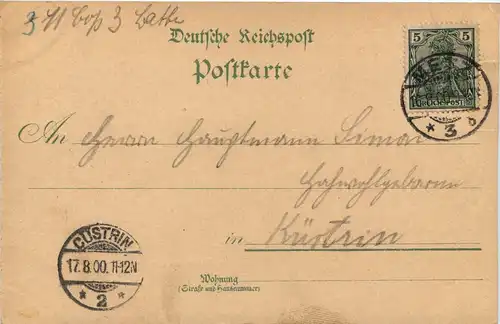 Deutsche Reichspost
Postkarte
5 5
REICHSPOST
METZ
* 3 b
An Herrn Hauptmann Simon
Hochwohlgeboren
in Küstrin
CÜSTRIN
17.8.00. 11-12N
* 2 *
Wohnung
(Straße und Hausnummer)